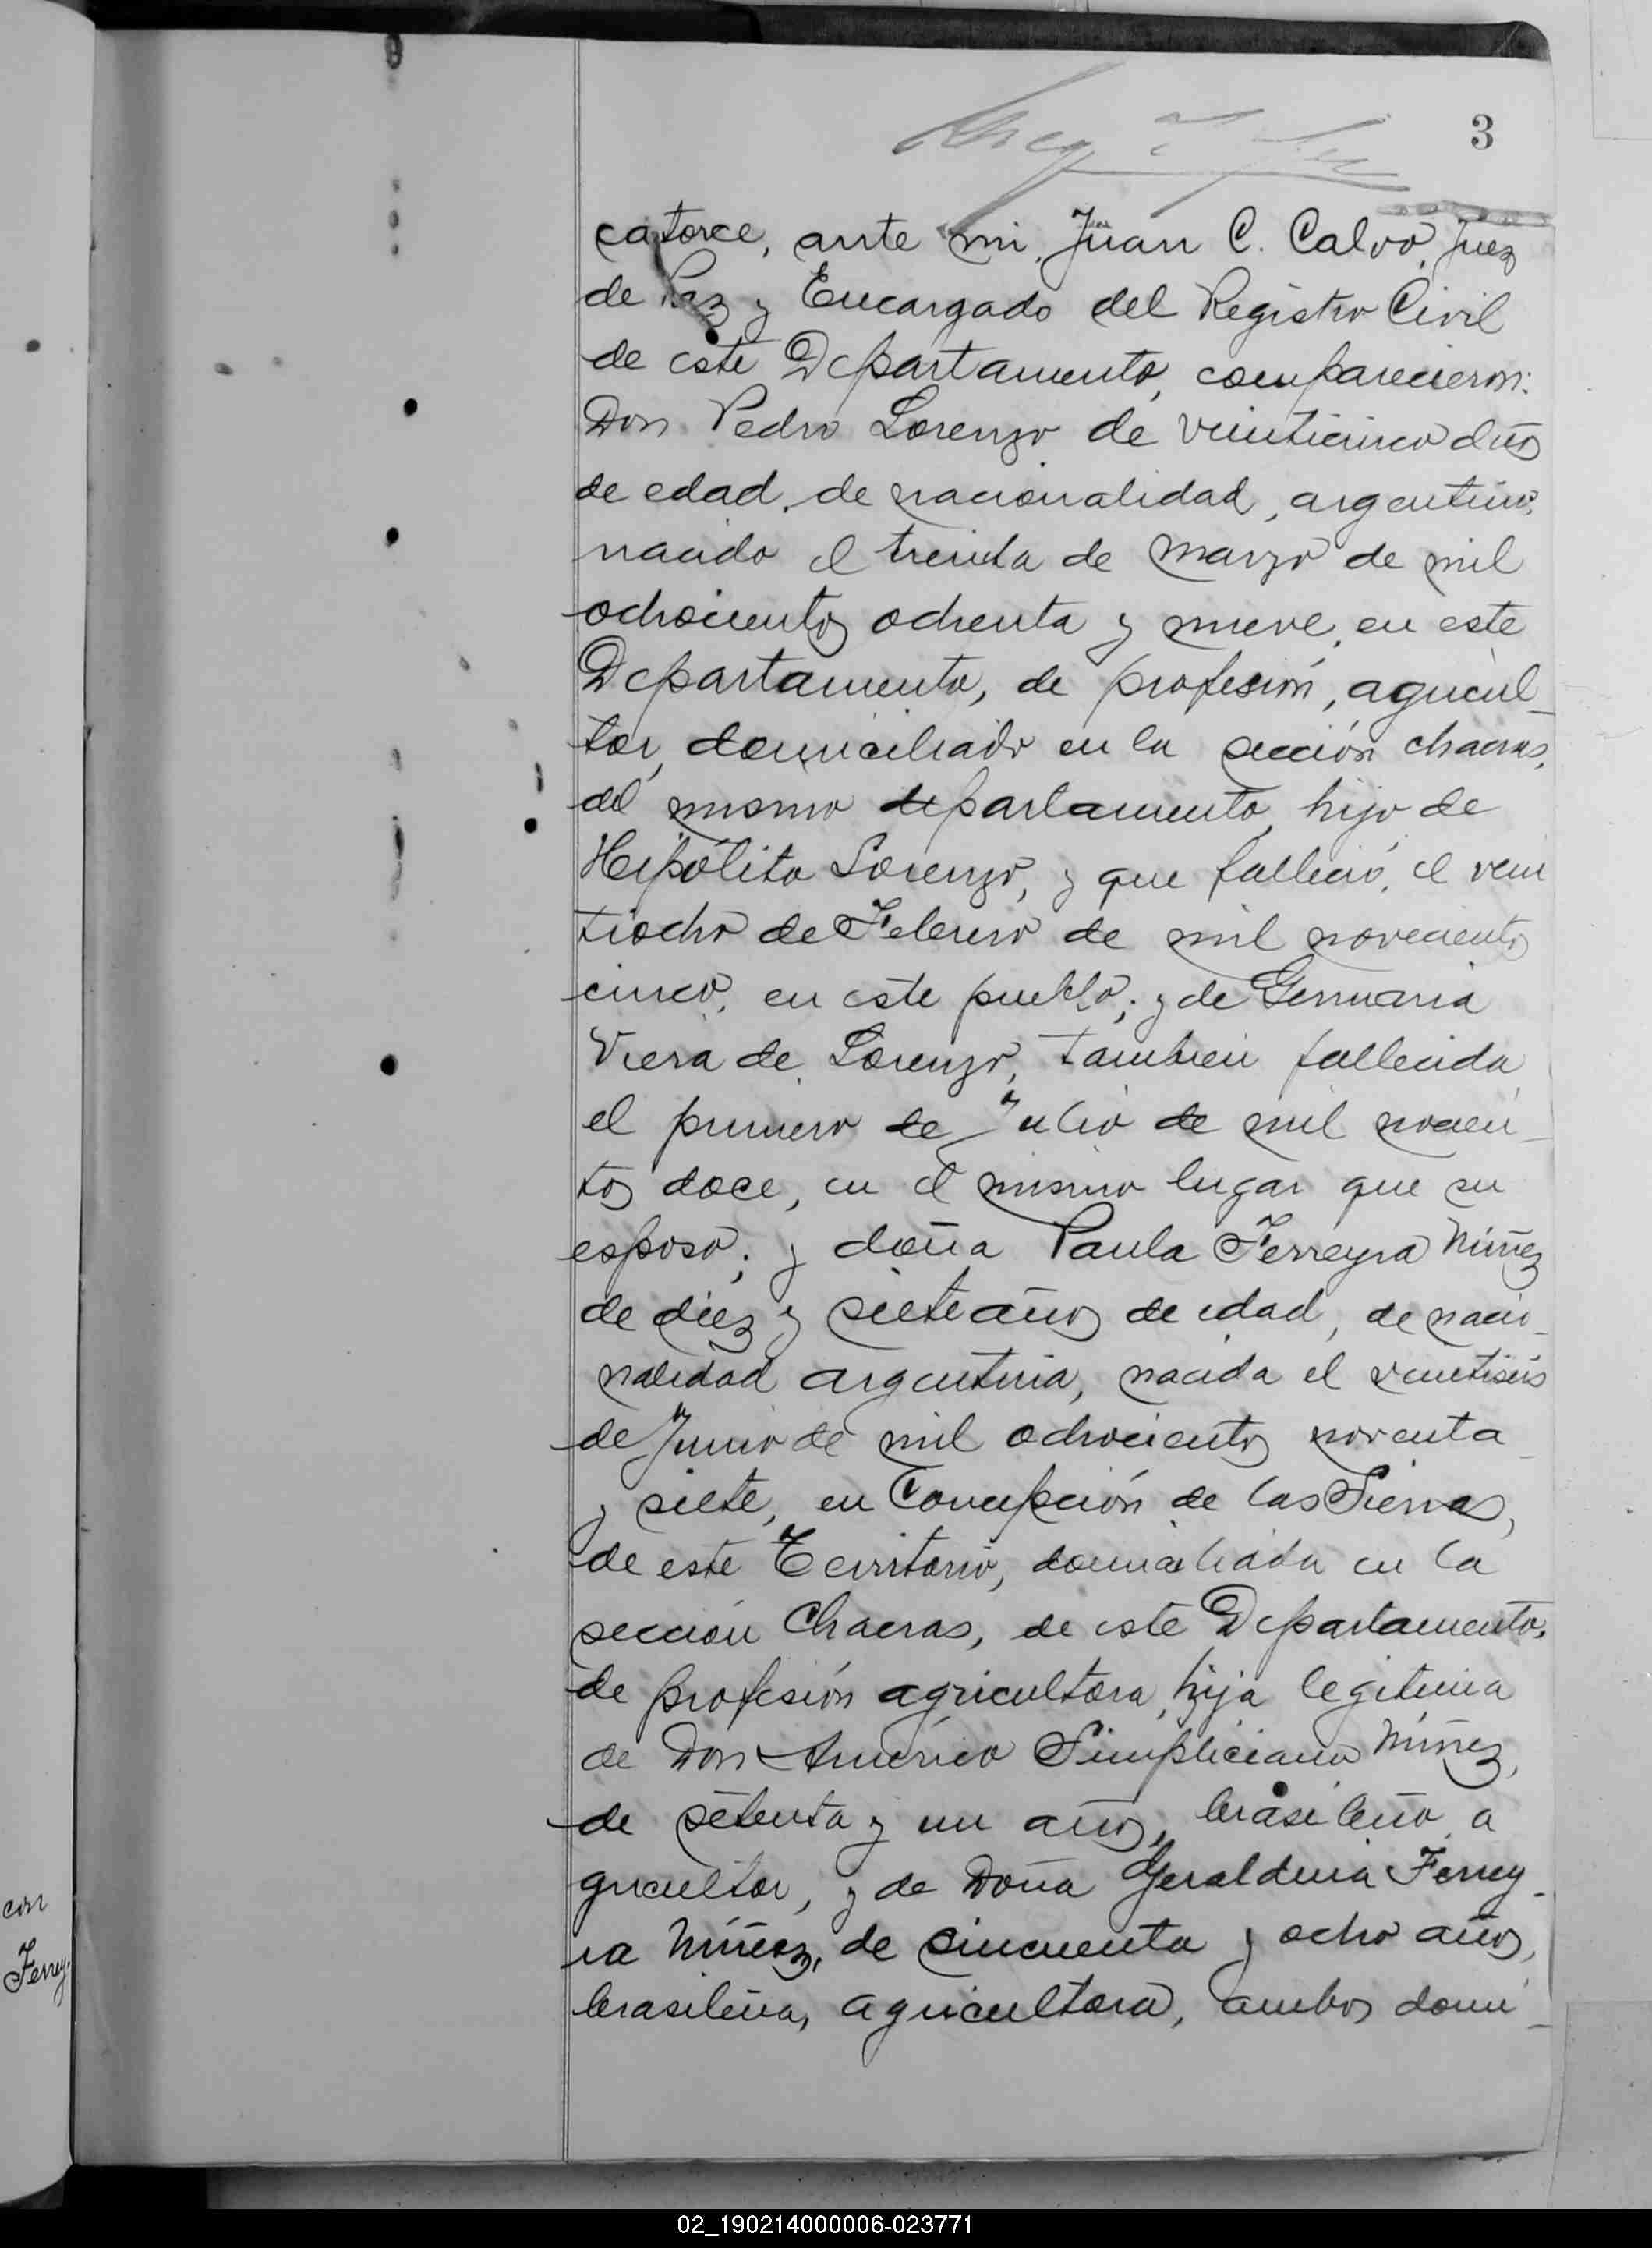 3
catorce, ante mi, Juan C. Calvo, Juez
de Paz y Encargado del Registro Civil
de este Departamento, comparecieron:
Don Pedro Lorenzo de veinticinco años
de edad, de nacionalidad, argentino,
nacido el treinta de marzo de mil
ochocientos ochenta y nueve, en este
Departamento, de profesión, agricul_
tor, domiciliado en la sección chacras,
del mismo departamento, hijo de
Hipólito Lorenzo, y que falleció, el vein
tiocho de Febrero de mil novecientos
cinco, en este pueblo; y de Germana
Viera de Lorenzo, tambien fallecida,
el primero de Julio de mil novecien_
tos doce, en el mismo lugar que su
esposo; y doña Paula Ferreyra Núñez
de diez y siete años de edad, de nacio_
nalidad argentina, nacida el veintiseis
de Junio de mil ochocientos noventa
y siete, en Concepción de las Sierras,
de este Territorio, domiciliada en la
sección Chacras, de este Departamento,
de profesión agricultora, hija legitima
de Don Américo Simpliciano Núñez,
de setenta y un años, brasileño, a
gricultor, y de Doña Geraldina Ferrey_
ra Núñez, de cincuenta y ocho años,
brasileña, agricultora, ambos domi_
con
Ferrey.
02_190214000006-023771